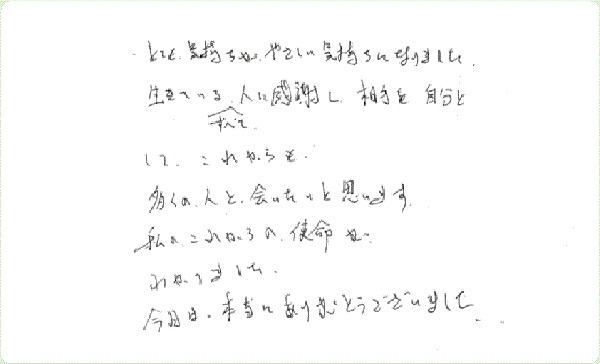 とても気持ちが、やさしい気持ちになりました。
生きている、すべて人に感謝し、相手を自分と
して、これからも、
多くの人と、会いたいと思います。
私の、これからの、使命も
わかりました。
今日は、本当にありがとうございました